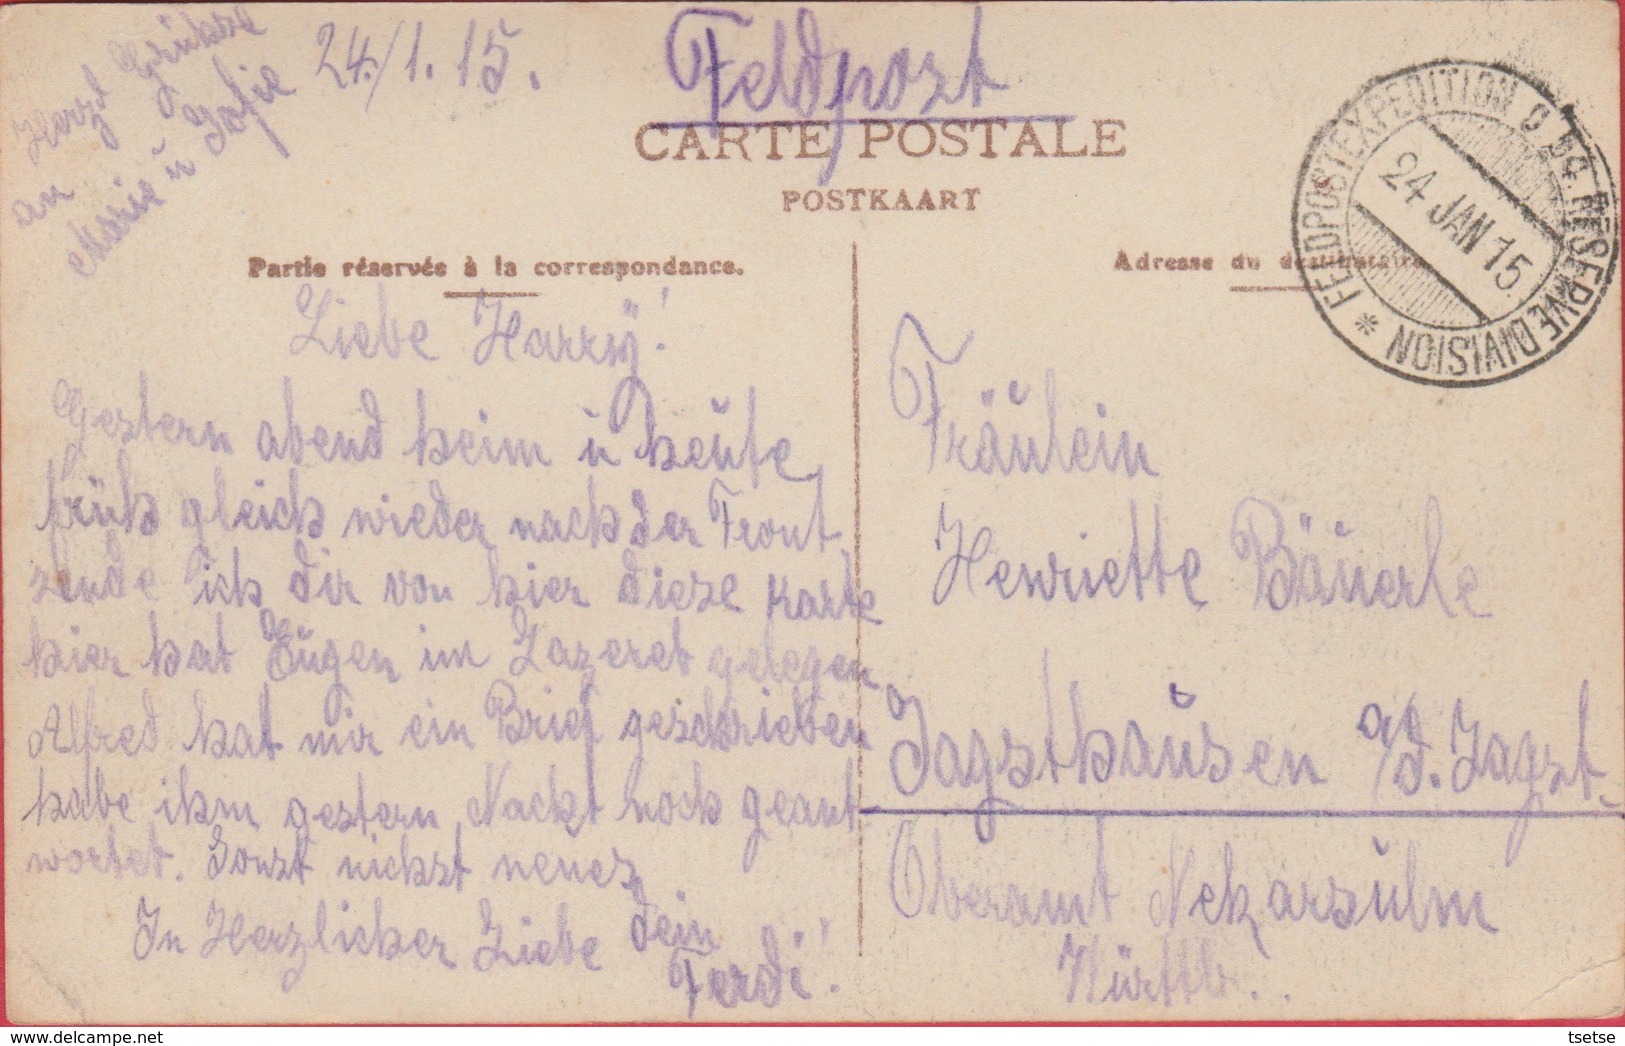 Herzl Grüksze
an
Marie u Sofie
24./1. 15.
Feldpost
CARTE POSTALE
POSTKAART
FELDPOSTEXPEDITION D 54. RESERVEDIVISION *
24 JAN 15
Partie réservée à la correspondance.
Adresse du destinataire
Liebe Harry!
Gestern abend heim u heute
früh gleich wieder nach der Front
sende ich dir von hier diese Karte
hier hat Eugen im Lazeret gelegen
Alfred hat mir ein Brief geschrieben
habe ihm gestern Nacht noch geant
wortet. Sonst nichst neues
In Herzlicher Liebe Dein
Ferdi!
Fräulein
Henriette Bäuerle
Jagsthausen a/d. Jagst.
Oberamt Nekarsulm
Württb..
tsetse